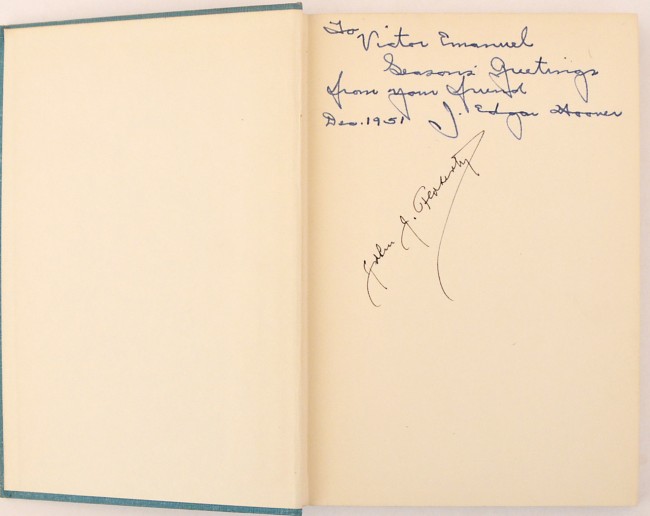 To Victor Emanuel
Seasons' Greetings
from your friend
Dec. 1951 J. Edgar Hoover
John J. Floherty